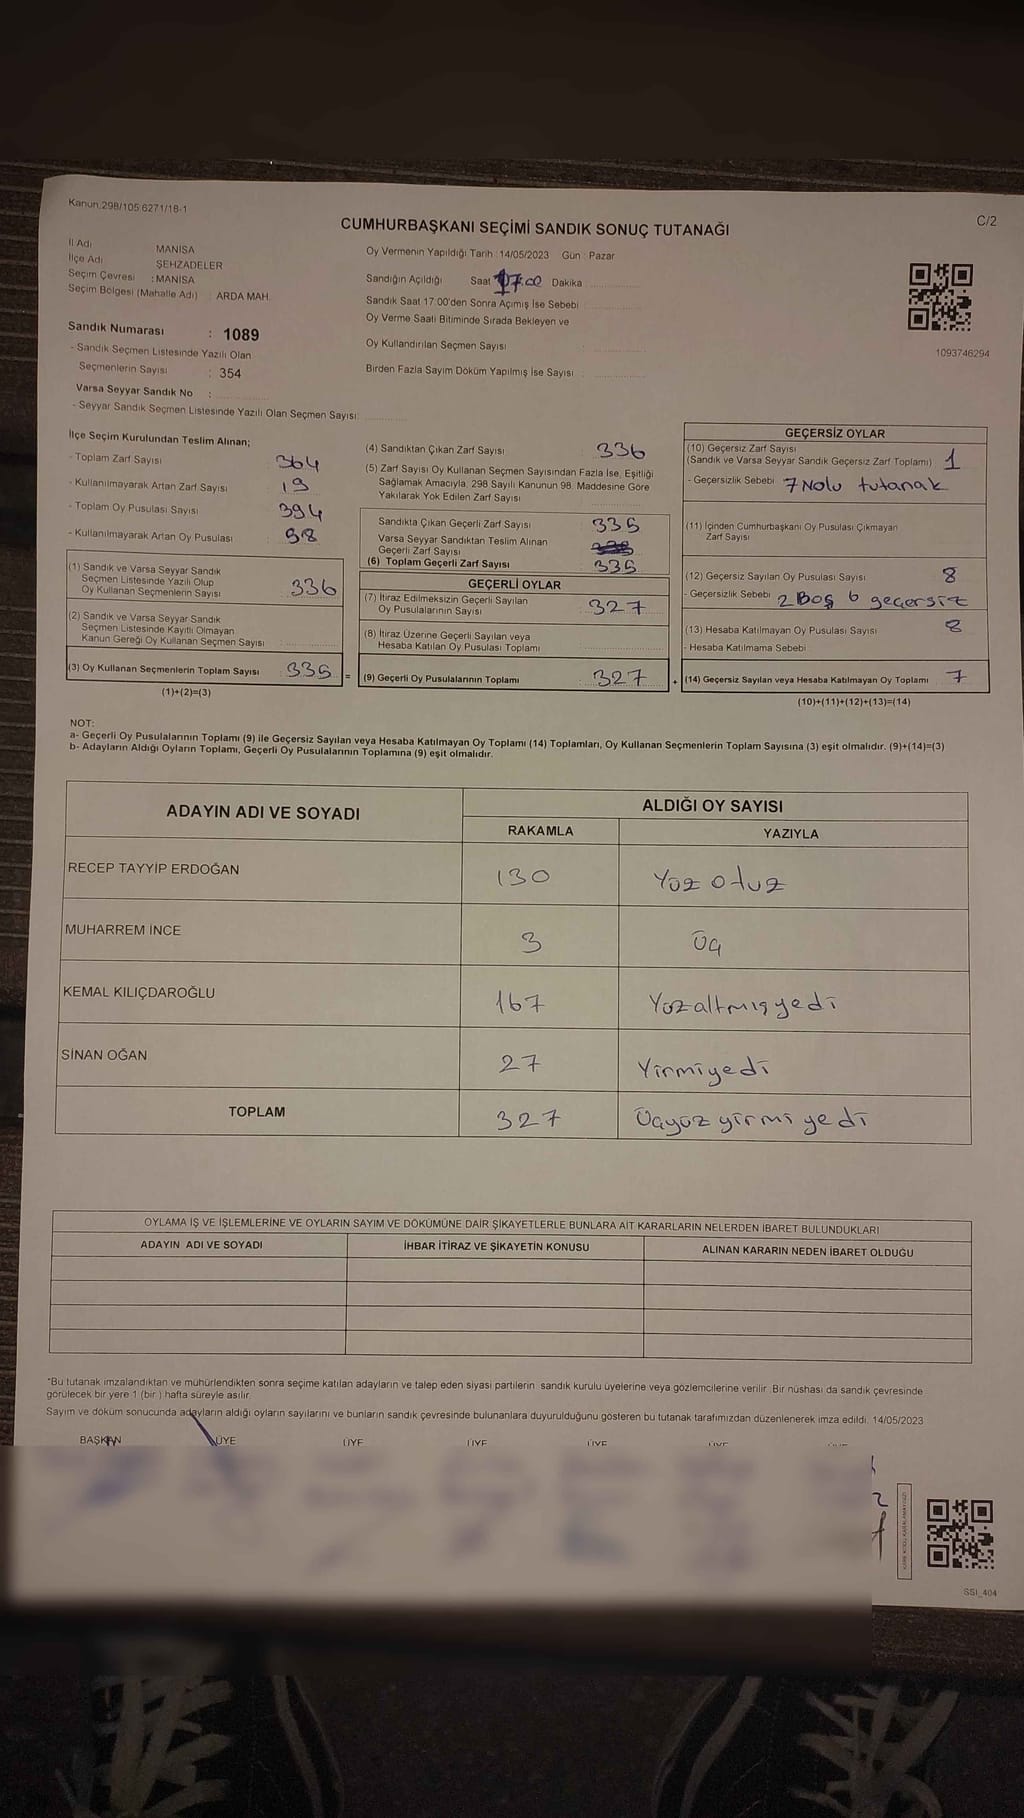 Kanun.298/105.6271/18-1
C/2
CUMHURBAŞKANI SEÇİMİ SANDIK SONUÇ TUTANAĞI
İl Adı MANİSA
İlçe Adı ŞEHZADELER
Seçim Çevresi : MANİSA
Seçim Bölgesi (Mahalle Adı) : ARDA MAH.
Sandık Numarası : 1089
- Sandık Seçmen Listesinde Yazılı Olan
Seçmenlerin Sayısı : 354
Varsa Seyyar Sandık No :
- Seyyar Sandık Seçmen Listesinde Yazılı Olan Seçmen Sayısı:
Oy Vermenin Yapıldığı Tarih : 14/05/2023 Gün : Pazar
Sandığın Açıldığı Saat 17.00 Dakika
Sandık Saat 17:00'den Sonra Açımış İse Sebebi
Oy Verme Saati Bitiminde Sırada Bekleyen ve
Oy Kullandırılan Seçmen Sayısı :
Birden Fazla Sayım Döküm Yapılmış İse Sayısı :
1093746294
İlçe Seçim Kurulundan Teslim Alınan;
- Toplam Zarf Sayısı : 364
- Kullanılmayarak Artan Zarf Sayısı : 19
- Toplam Oy Pusulası Sayısı : 394
- Kullanılmayarak Artan Oy Pusulası : 98
(1) Sandık ve Varsa Seyyar Sandık
Seçmen Listesinde Yazılı Olup
Oy Kullanan Seçmenlerin Sayısı : 336
(2) Sandık ve Varsa Seyyar Sandık
Seçmen Listesinde Kayıtlı Olmayan
Kanun Gereği Oy Kullanan Seçmen Sayısı :
(3) Oy Kullanan Seçmenlerin Toplam Sayısı : 335 =
(1)+(2)=(3)
(4) Sandıktan Çıkan Zarf Sayısı : 336
(5) Zarf Sayısı Oy Kullanan Seçmen Sayısından Fazla İse, Eşitliği
Sağlamak Amacıyla, 298 Sayılı Kanunun 98. Maddesine Göre
Yakılarak Yok Edilen Zarf Sayısı
Sandıkta Çıkan Geçerli Zarf Sayısı : 335
Varsa Seyyar Sandıktan Teslim Alınan
Geçerli Zarf Sayısı
(6) Toplam Geçerli Zarf Sayısı : 335
GEÇERLİ OYLAR
(7) İtiraz Edilmeksizin Geçerli Sayılan
Oy Pusulalarının Sayısı : 327
(8) İtiraz Üzerine Geçerli Sayılan veya
Hesaba Katılan Oy Pusulası Toplamı
(9) Geçerli Oy Pusulalarının Toplamı : 327 +
GEÇERSİZ OYLAR
(10) Geçersiz Zarf Sayısı
(Sandık ve Varsa Seyyar Sandık Geçersiz Zarf Toplamı) : 1
- Geçersizlik Sebebi : 7 Nolu tutanak
(11) İçinden Cumhurbaşkanı Oy Pusulası Çıkmayan
Zarf Sayısı
(12) Geçersiz Sayılan Oy Pusulası Sayısı 8
- Geçersizlik Sebebi : 2 Boş 6 geçersiz
(13) Hesaba Katılmayan Oy Pusulası Sayısı 8
- Hesaba Katılmama Sebebi
(14) Geçersiz Sayılan veya Hesaba Katılmayan Oy Toplamı : 7
(10)+(11)+(12)+(13)=(14)
NOT:
a- Geçerli Oy Pusulalarının Toplamı (9) ile Geçersiz Sayılan veya Hesaba Katılmayan Oy Toplamı (14) Toplamları, Oy Kullanan Seçmenlerin Toplam Sayısına (3) eşit olmalıdır. (9)+(14)=(3)
b- Adayların Aldığı Oyların Toplamı, Geçerli Oy Pusulalarının Toplamına (9) eşit olmalıdır.
ADAYIN ADI VE SOYADI ALDIĞI OY SAYISI
RAKAMLA YAZIYLA
RECEP TAYYİP ERDOĞAN 130 Yüz otuz
MUHARREM İNCE 3 Üç
KEMAL KILIÇDAROĞLU 167 Yüzaltmışyedi
SİNAN OĞAN 27 Yirmiyedi
TOPLAM 327 Üçyüz yirmi yedi
OYLAMA İŞ VE İŞLEMLERİNE VE OYLARIN SAYIM VE DÖKÜMÜNE DAİR ŞİKAYETLERLE BUNLARA AİT KARARLARIN NELERDEN İBARET BULUNDUKLARI
ADAYIN ADI VE SOYADI İHBAR İTİRAZ VE ŞİKAYETİN KONUSU ALINAN KARARIN NEDEN İBARET OLDUĞU
*Bu tutanak imzalandıktan ve mühürlendikten sonra seçime katılan adayların ve talep eden siyasi partilerin sandık kurulu üyelerine veya gözlemcilerine verilir. Bir nüshası da sandık çevresinde
görülecek bir yere 1 (bir) hafta süreyle asılır.
Sayım ve döküm sonucunda adayların aldığı oyların sayılarını ve bunların sandık çevresinde bulunanlara duyurulduğunu gösteren bu tutanak tarafımızdan düzenlenerek imza edildi. 14/05/2023
BAŞKAN ÜYE ÜYE ÜYE ÜYE ÜYE ÜYE
KARE KODU KARALAMAYINIZ!
SSI_404